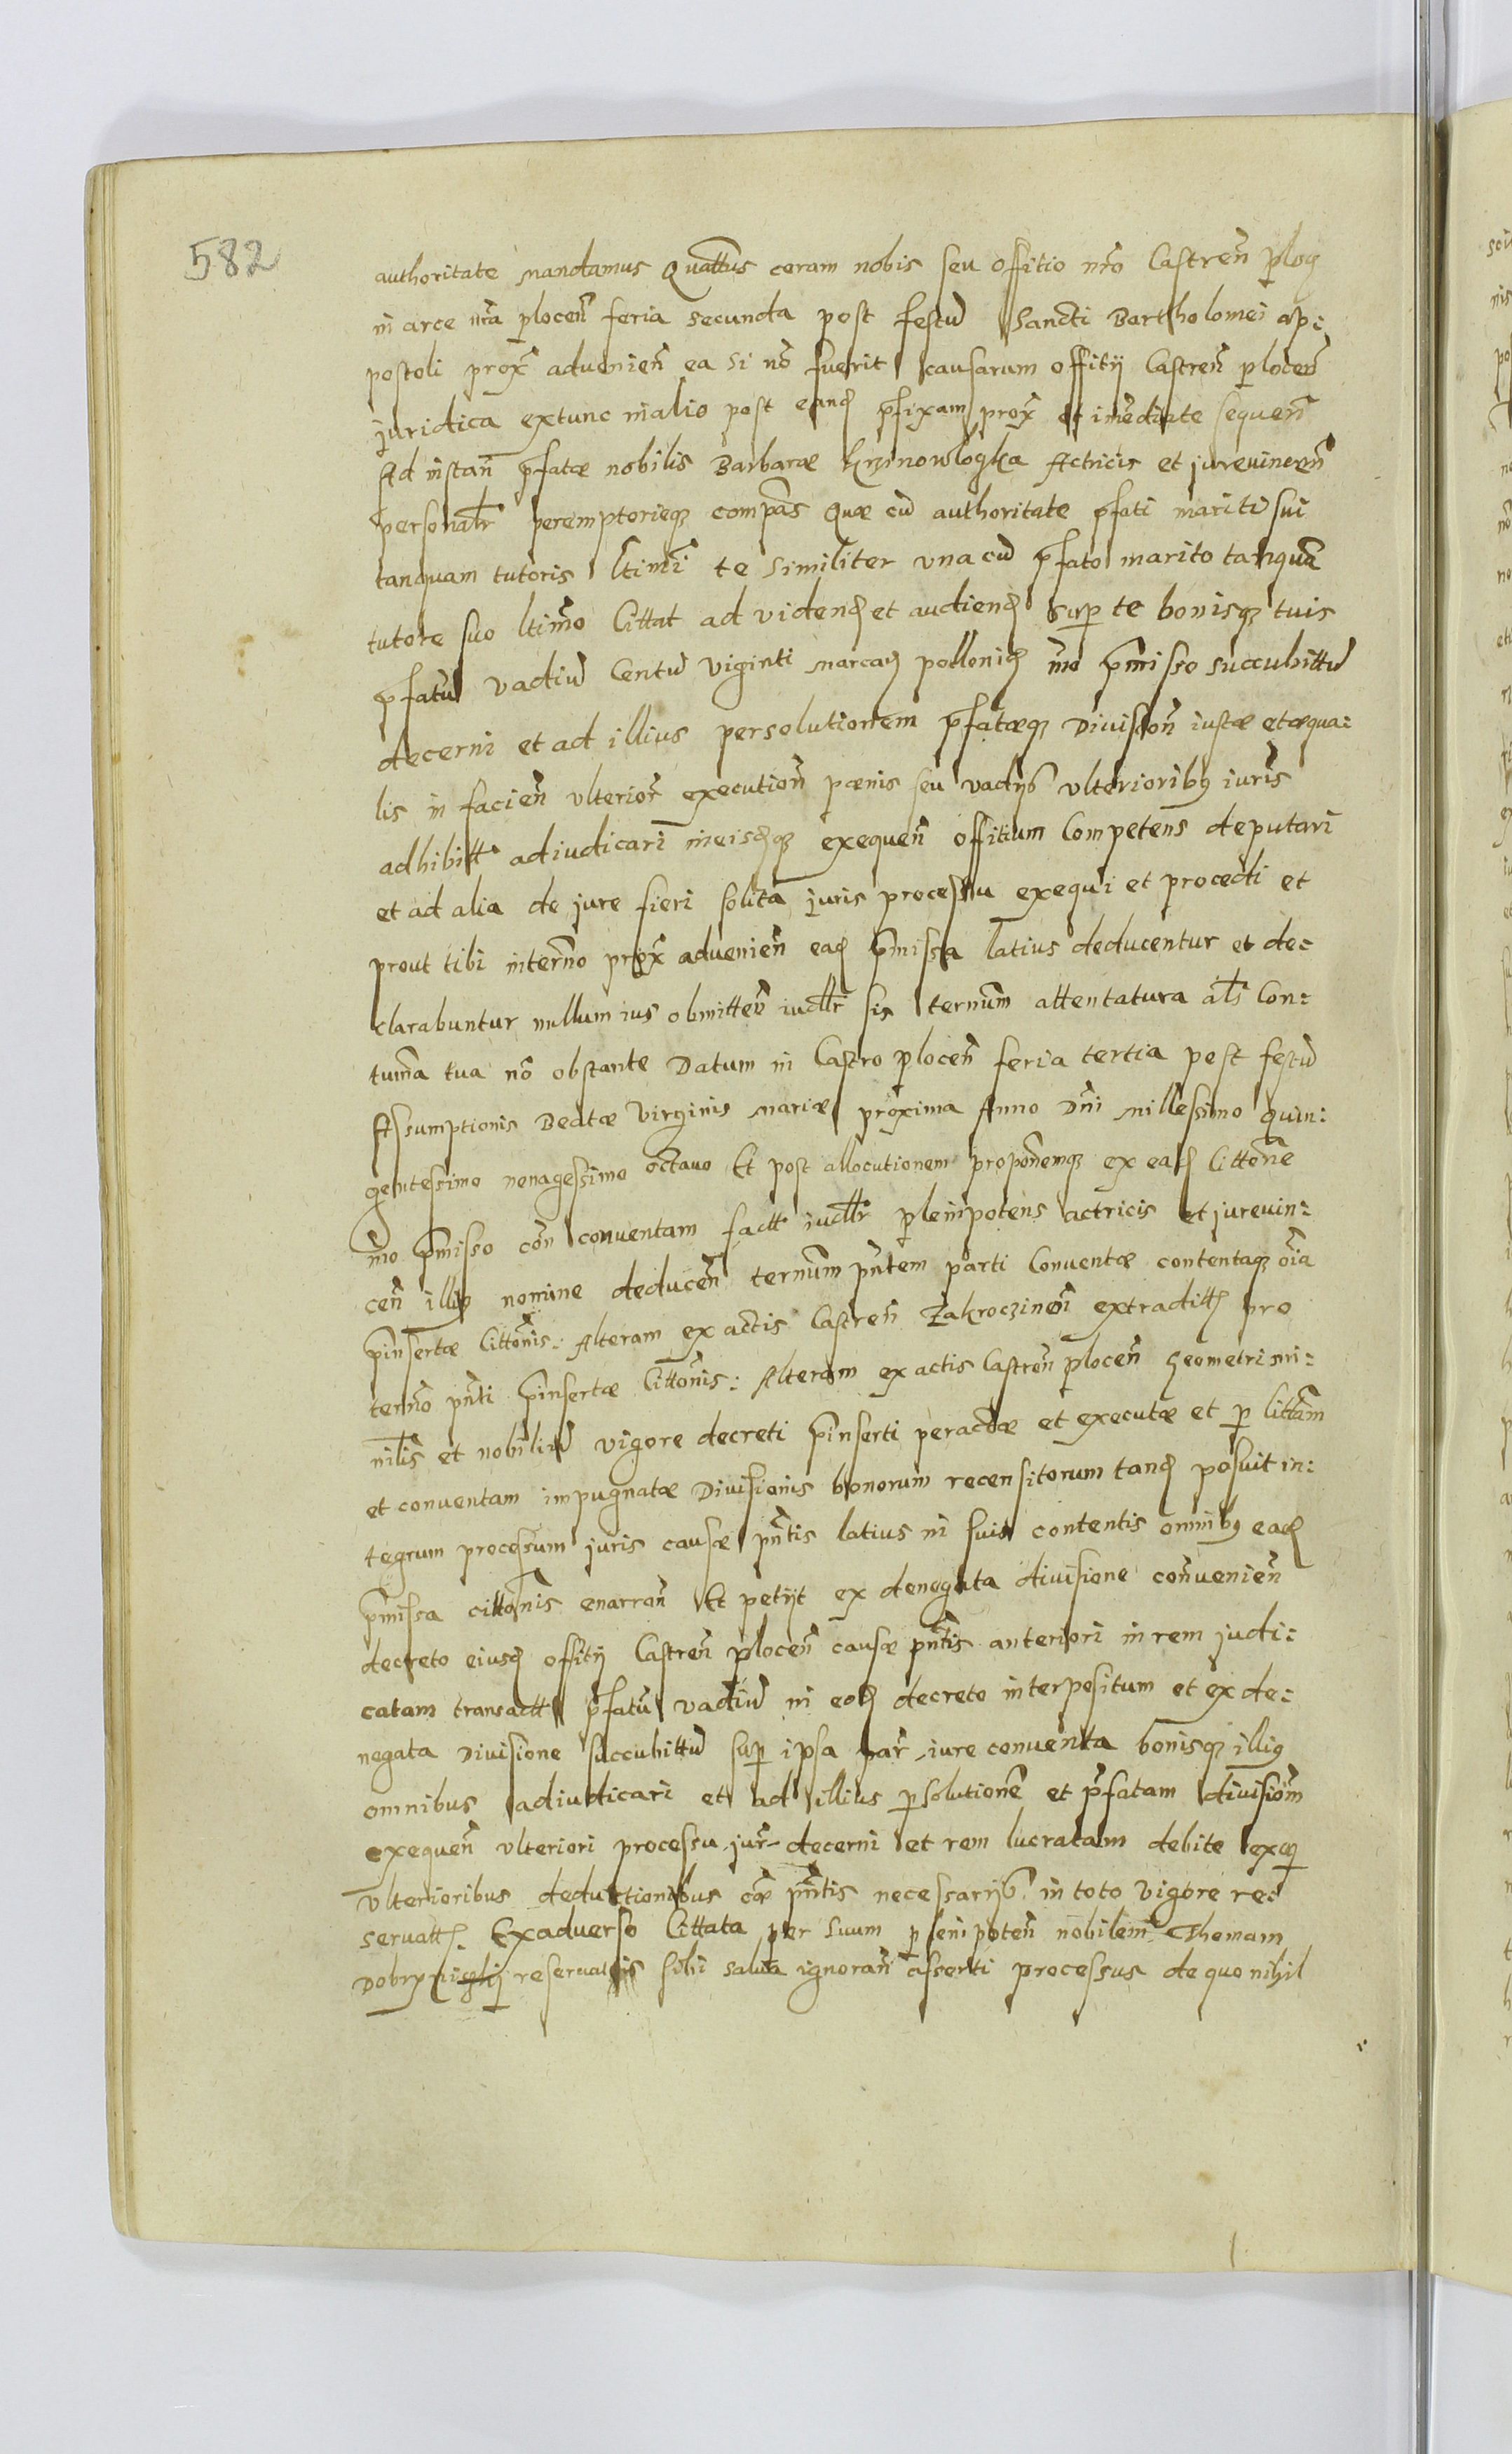 582
authoritate mandamus Quattus coram nobis seu offitio nro Castren ploc
in arce nra plocen feria secunda post festu Sancti Bartholomei ap:
postoli prox aduenien ea si no fuerit causarum offitij Castren plocen
juridica extunc in alio post eand pfixam prox et imediate sequen
Ad instan pfatæ nobilis Barbaræ Actricis et jureuincen
personalr peremptorieq compas Quæ cu authoritate pfati mariti sui
tanquam tutoris ltimi te similiter vna cu pfato marito tanqua
tutore suo ltimo Cittat ad videnđ et audienđ sup te bonisq tuis
pfatu vadiu Centu viginti marcaɋ pollonič mo pmisso succubittu
decerni et ad illius persolutionem pfatæq Diuision iustæ et æqua:
lis in facien vlterior execution pænis seu vadijs vlterioribɋ iuris
adhibitt adiudicari ineisdq exequen offitium Competens deputari
et ad alia de jure fieri solita juris processu exequi et procedi et
prout tibi interno prox aduenien eađ pmissa latius deducentur et de:
clarabuntur nullum ius obmitten iudllr sis ternum attentatura als Con:
tuma tua no obstante Datum in Castro plocen feria tertia post festu
Assumptionis Beatæ Virginis Mariæ proxima Anno Dni Millessimo Quin:
gentessimo nonagessimo octauo Et post allocutionem proponemq ex eađ Cittone
mo pmisso con conuentam factt iudllr plenipotens actricis et jureuin:
cen illiɋ nomine deducen ternum pntem parti Conuentæ contentaq oia
pinsertæ Cittonis: Alteram ex actis Castren Zakroczinen extraditt pro
terno pnti pinsertæ Cittonis: Alteram ex actis Castren plocen Geometri mi:
nilis et nobiliu vigore decreti pinserti peractæ et executæ et p Cittam
et conuentam impugnatæ Diuisionis bonorum recensitorum tanđ posuit in:
tegrum processum juris causæ pntis latius in suis contentis omnibɋ eađ
pmissa cittonis enarran Et petijt ex denegata diuisione conuenien
decreto eiusđ offitij Castren plocen causæ pntis anteriori in rem judi:
catam transactt pfatu vadiu in eođ decreto interpositum et ex de:
negata Diuisione succubittu sup ipsa par iure conuenta bonisq illiɋ
omnibus adiudicari et ad illius psolutione et pfatam diuisiom
exequen vlteriori processu jur decerni et rem lucratam debite exeq
vlterioribus deductionibus pntis necessarijs in toto vigore re:
seruatt. Ex aduerso Cittata per suum plenipoten nobilem Thomam
reseruatis sibi salua ignoran asserti processus de quo nihil